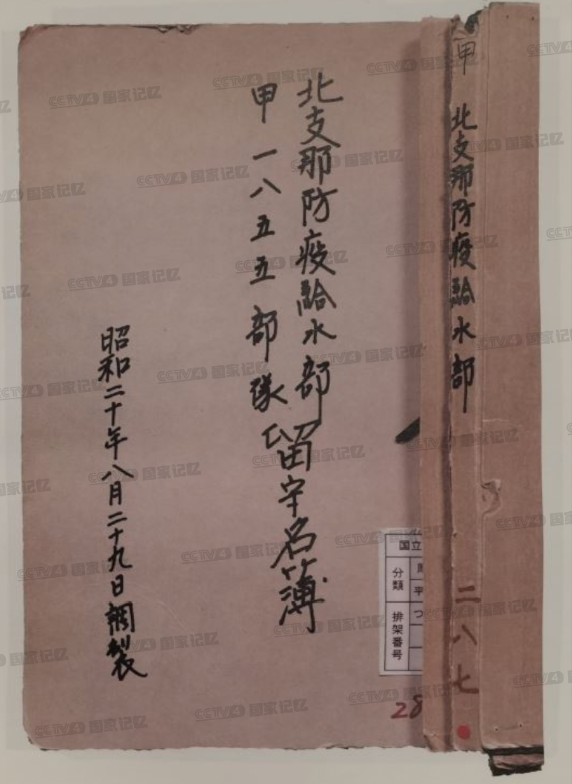 北支那防疫給水部
甲一八五五部隊
留守名簿
昭和二十年八月二十九日調製
甲 北支那防疫給水部
二八七
国立
分類
排架番号
平
つ
一
28
CCTV4 国家记忆